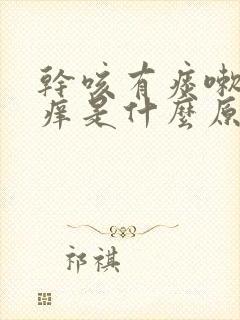 幹咳有痰嗽
痒是什麼原
祁祺